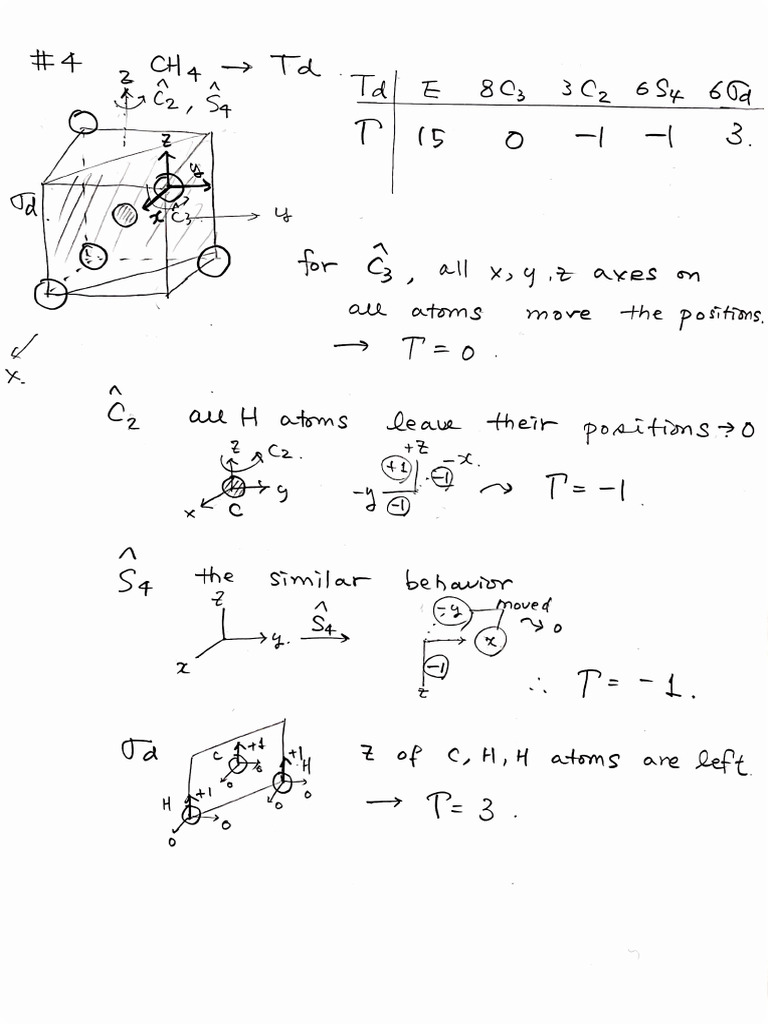 #4 CH4 → Td
z
Ĉ2, Ŝ4
Td E 8C3 3C2 6S4 6σd
Γ 15 0 -1 -1 3.
z
y
x
Ĉ3
σd
y
x.
for Ĉ3, all x, y, z axes on
all atoms move the positions.
→ Γ = 0.
Ĉ2 all H atoms leave their positions → 0
z C2.
x y
C
+z
+1 -1 -x.
-y -1
⇝ Γ = -1.
Ŝ4 the similar behavior
z
x y. Ŝ4
-y moved
x ⇝ 0
-1
z
∴ Γ = -1.
σd
C +1
0 0
+1 H
0 0
H +1
0 0
z of C, H, H atoms are left.
→ Γ = 3.